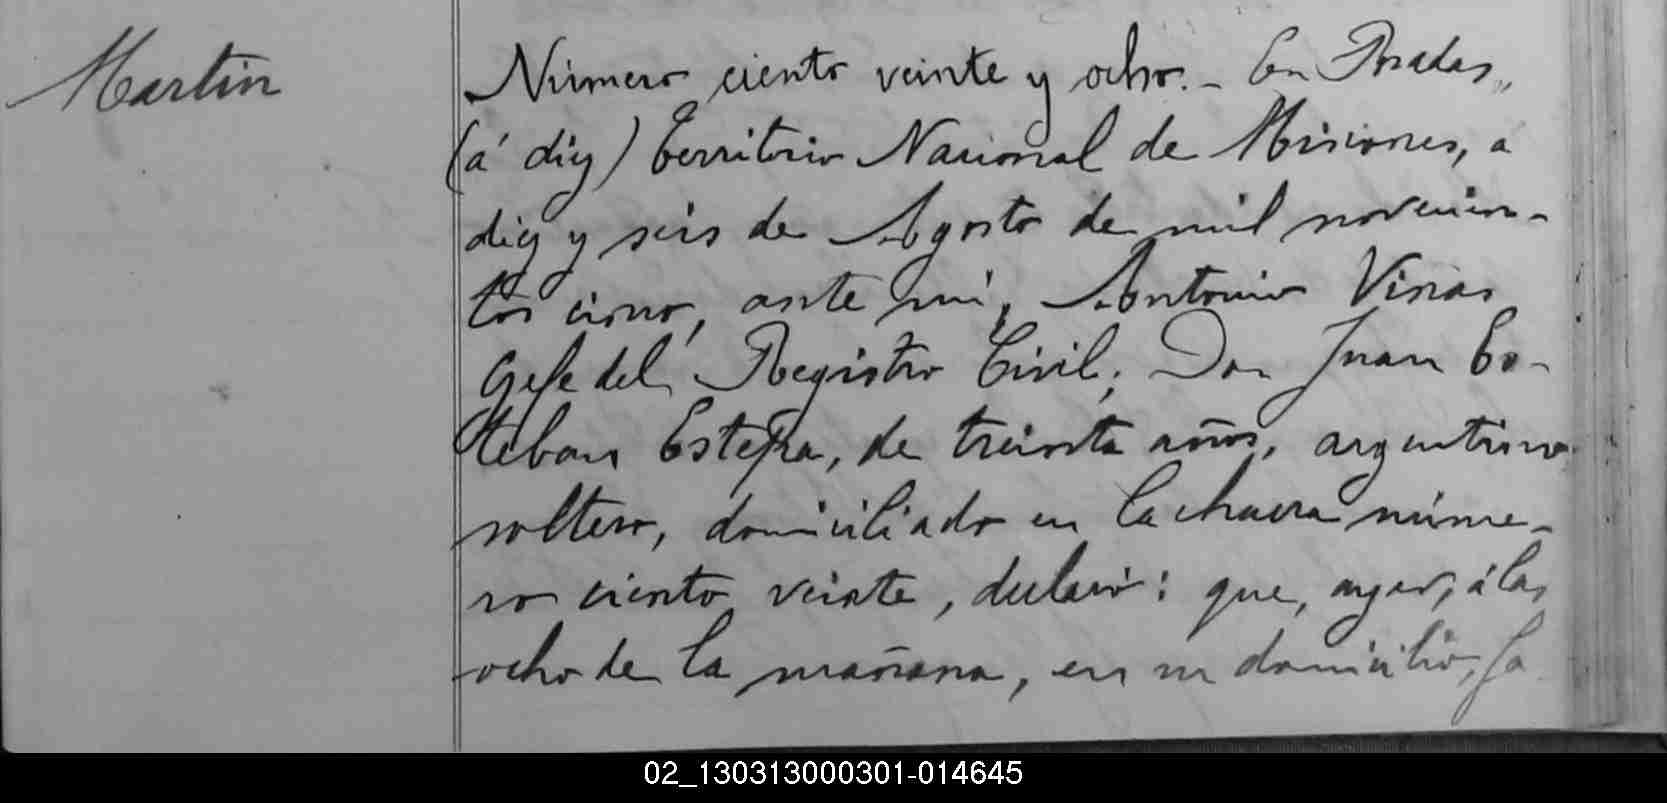 Martin
Número ciento veinte y ocho.- En Posadas,
(á diez) Territorio Nacional de Misiones, a
diez y seis de Agosto de mil novecien-
tos cinco, ante mi, Antonio Viñas
Gefe del Registro Civil, Don Juan Es-
teban Estepa, de treinta años, argentino
soltero, domiciliado en la chacra núme-
ro ciento veinte, declaró: que, ayer, á las
ocho de la mañana, en su domicilio, fa
02_130313000301-014645